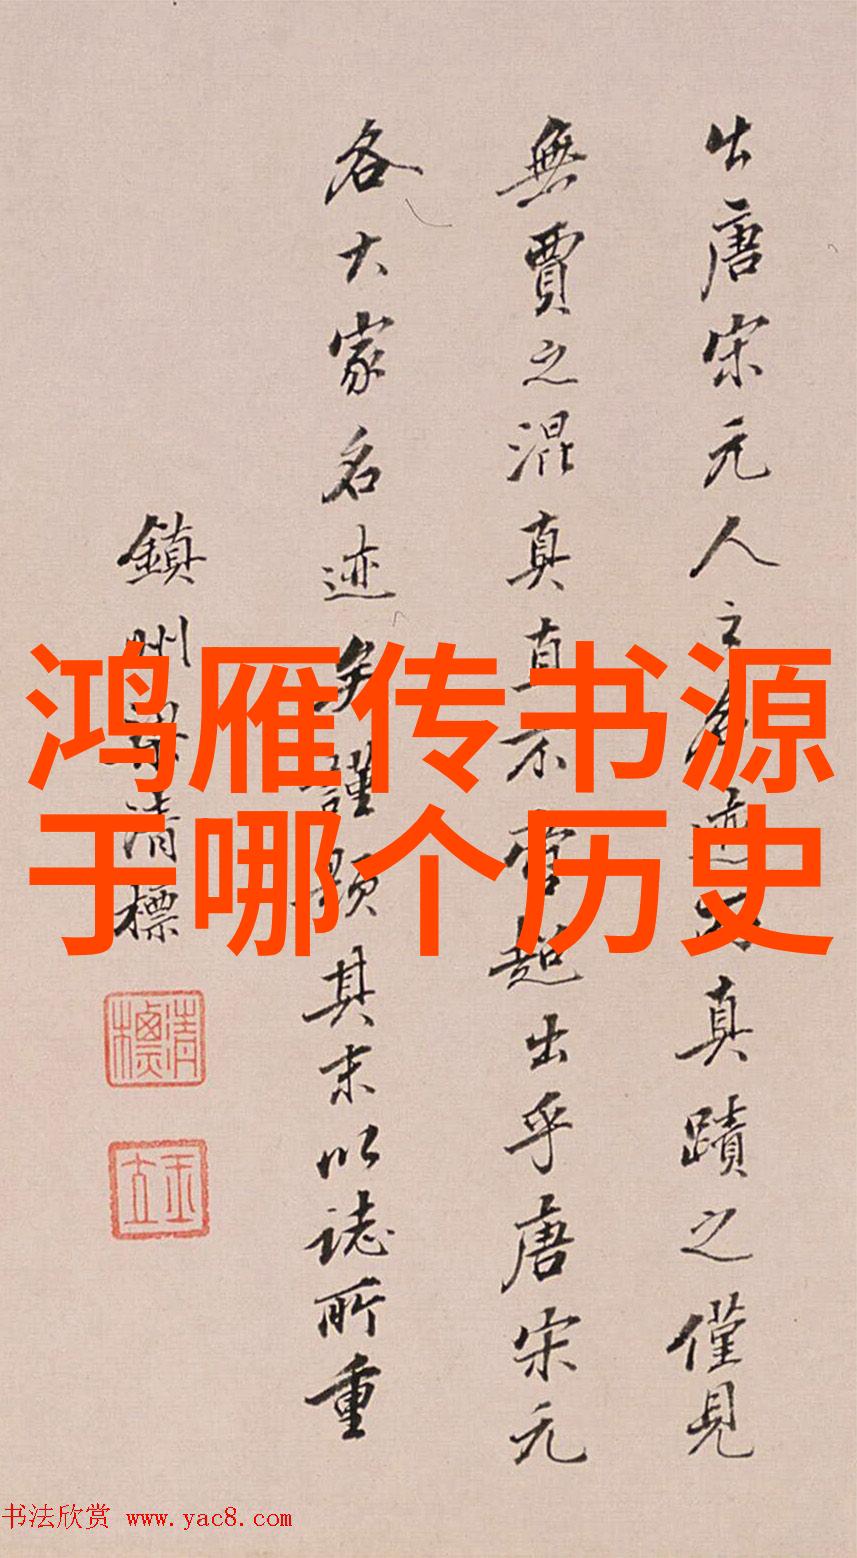 出唐宋元人之名迹乃真蹟之僅見
無賈之混真真不啻超出乎唐宋元
各大家名迹矣謹題其末以誌所重
鎮州梁清標
清標
玉立
鸿雁传书源
于哪个历史
书法欣赏 www.yac8.com